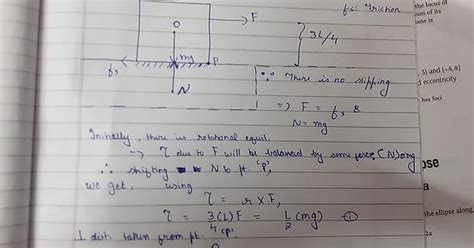 fs: friction
O
F
3L/4
mg
fs
P
N
∵ There is no slipping
⇒ F = fs &
N = mg
Initially, there is rotational equil.
⇒ τ due to F will be balanced by some force (N) or mg
∴ shifting N to pt. 'P',
we get, using
τ = r × F,
τ = 3(L)F/4 = L/2 (mg) ①
⊥ dist. taken from pt. 'P'.
the locus of
um of its
ane is
, 3) and (–4,4)
d eccentricity
has foci
pse
a
the ellipse along,